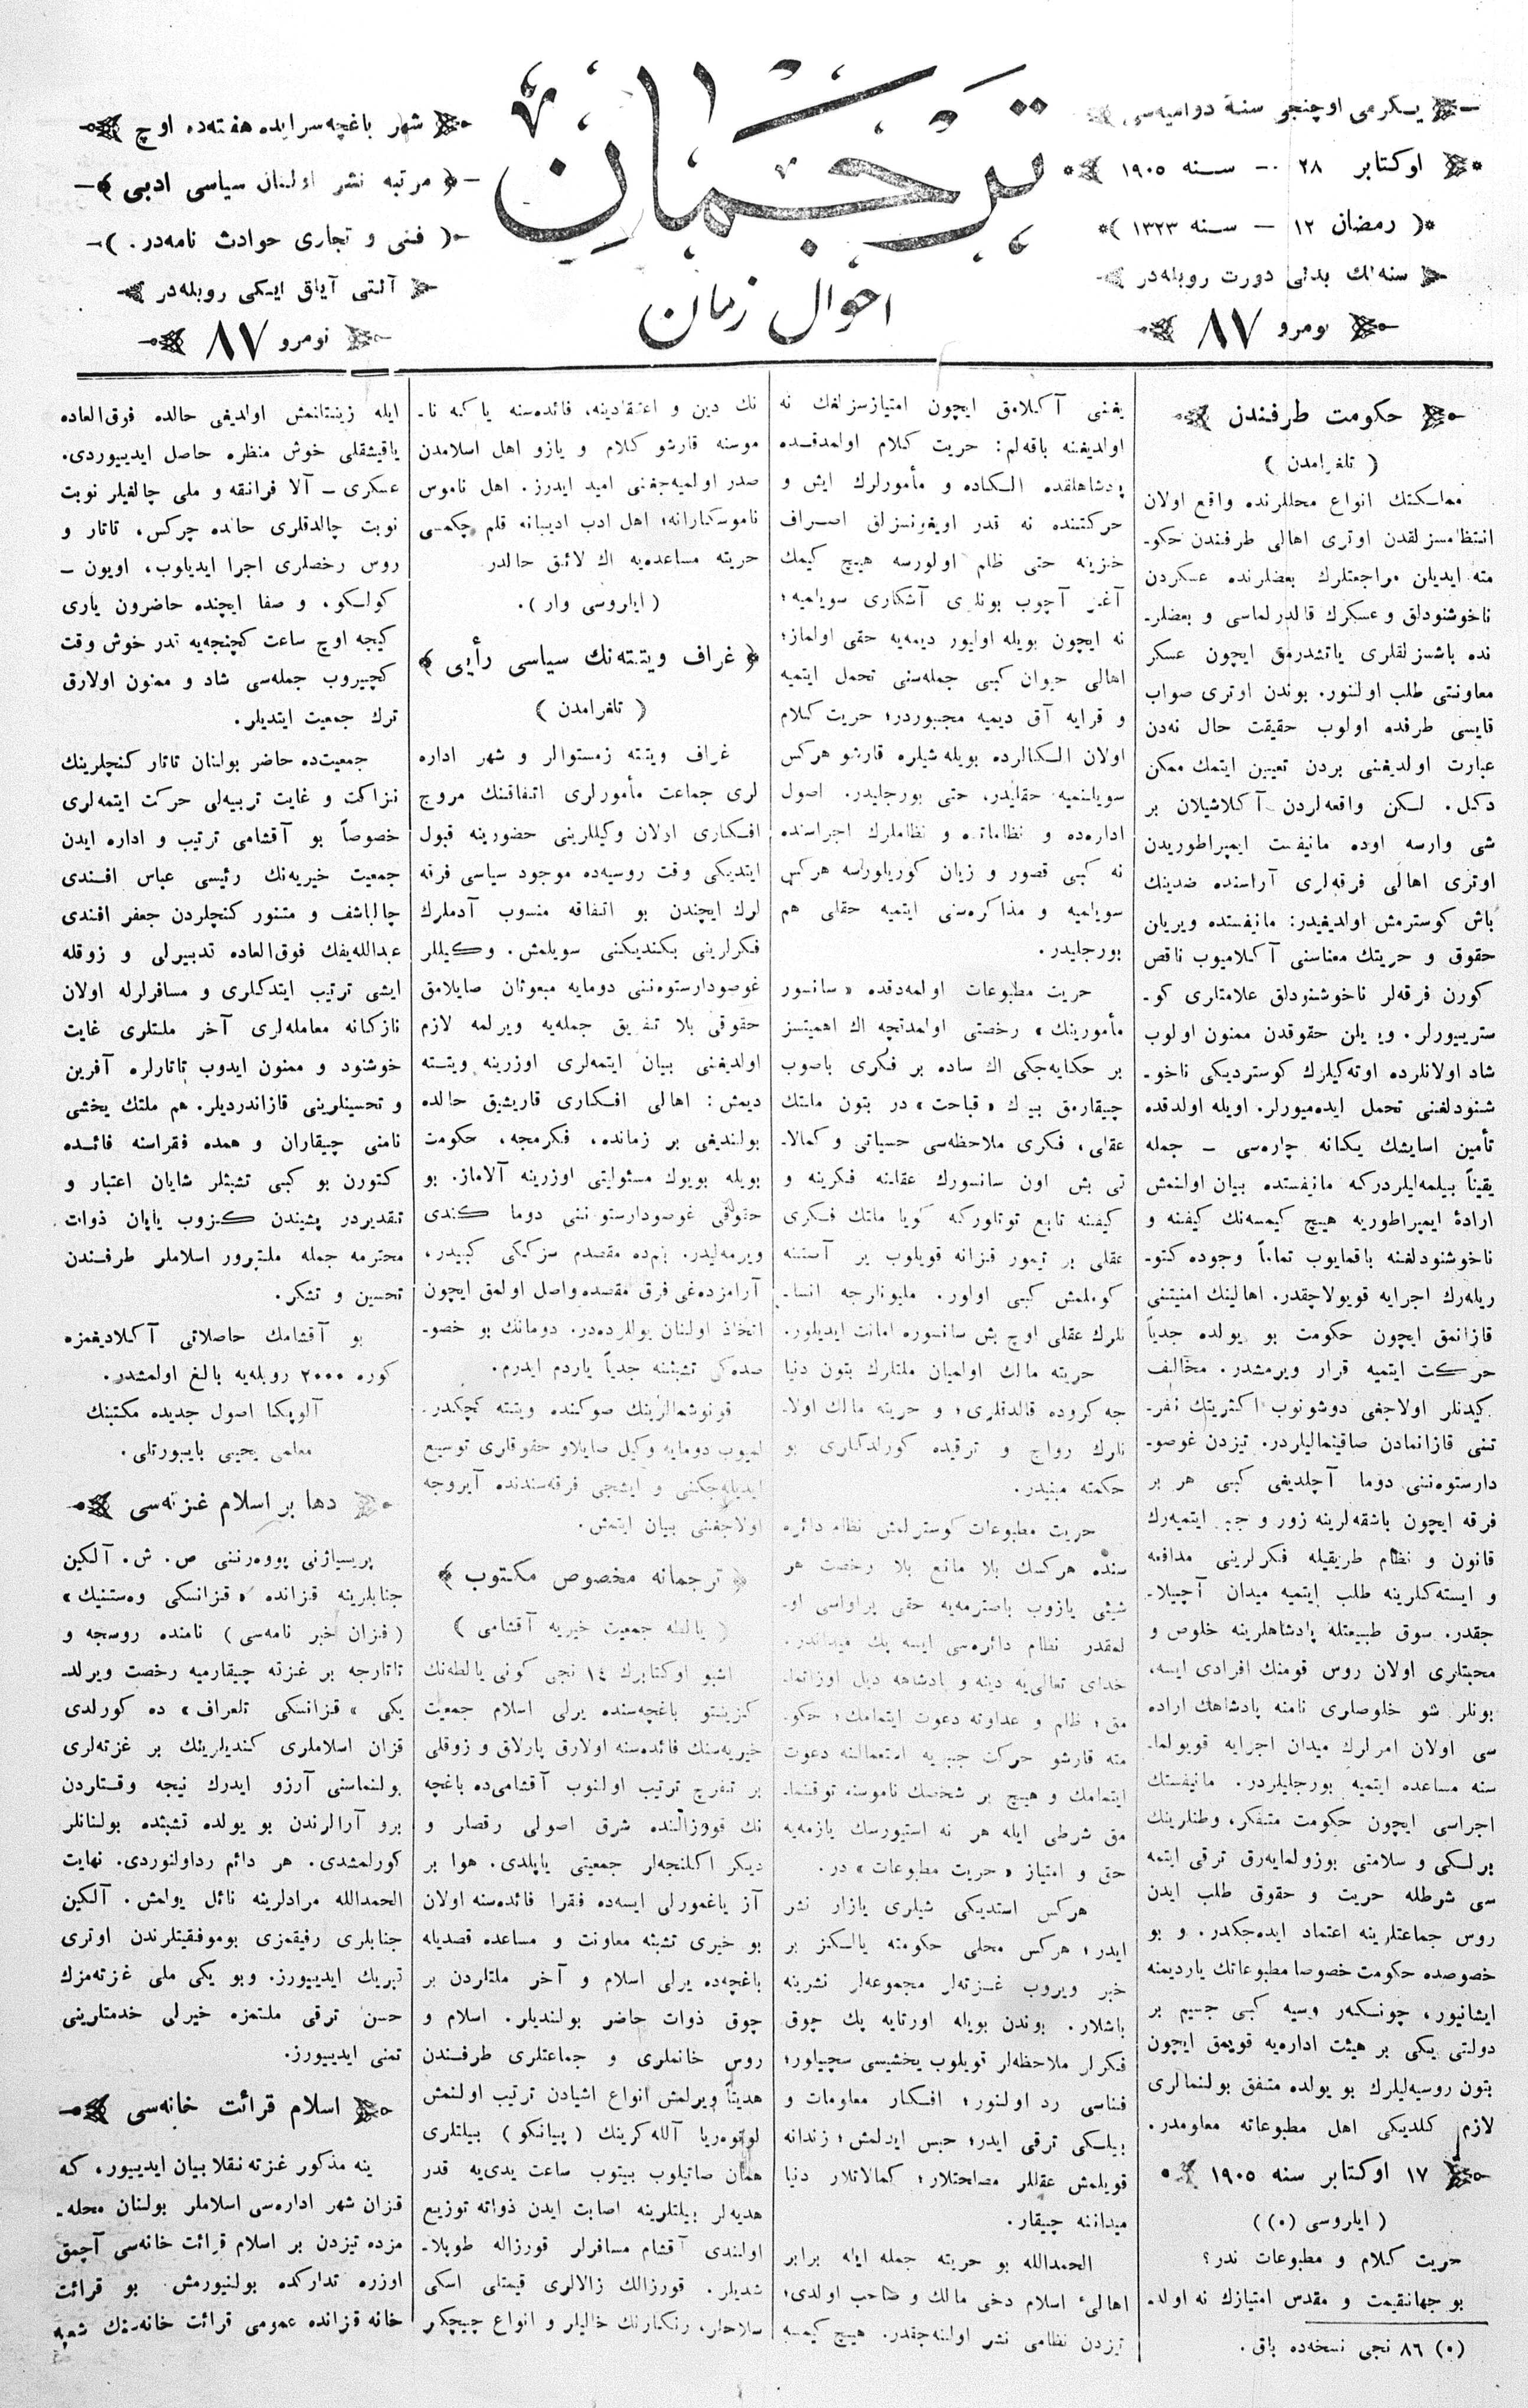 یكرمی اوچنجی سنهٔ دوامیه‌سی
اوكتابر ٢٨ — سنه ١٩٠٥
( رمضان ١٢ — سنه ١٣٢٣ )
سنه‌لك بدلی دورت روبله‌در
نومرو ٨٧
ترجمان
احوال زمان
شهر باغچه‌سرایده هفته‌ده اوچ
مرتبه نشر اولنان سیاسی ادبی
( فنی و تجاری حوادث نامه‌در. )
آلتی آیاق ایكی روبله‌در
نومرو ٨٧
حكومت طرفندن
( تلغرامدن )
مملكتك انواع محللرنده واقع اولان
انتظامسزلقدن اوتری اهالی طرفندن حكو-
مته ایدیلن مراجعتلرك بعضلرنده عسكردن
ناخوشنودلق و عسكرك قالدرلماسی و بعضلر-
نده باشسزلقلری یاتشدرمق ایچون عسكر
معاونتی طلب اولنور. بوندن اوتری صواب
قایسی طرفده اولوب حقیقت حال نه‌دن
عبارت اولدیغنی بردن تعیین ایتمك ممكن
دكل. لكن واقعه‌لردن آكلاشیلان بر
شی وارسه اوده مانیفست ایمپراطوریدن
اوتری اهالی فرقه‌لری آراسنده ضدینك
باش كوسترمش اولدیغیدر: مانیفستده ویریان
حقوق و حریتك معناسنی آكلامیوب ناقص
كورن فرقه‌لر ناخوشنودلق علامتلری كو-
ستریبورلر. ویریلن حقوقدن ممنون اولوب
شاد اولانلرده اوته‌كیلرك كوستردیكی ناخو-
شنودلغنی تحمل ایده‌میورلر. اویله اولدقده
تأمین اسایشك یكانه چاره‌سی - جمله
یقیناً بیلمه‌لیلردركه مانیفستده بیان اولنمش
ارادهٔ ایمپراطوریه هیچ كیمسه‌نك كیفنه و
ناخوشنودلغنه باقمایوب تماماً وجوده كتو-
ریله‌رك اجرایه قویولاچقدر. اهالینك امنیتنی
قازانمق ایچون حكومت بو یولده جدیاً
حركت ایتمیه قرار ویرمشدر. مخالف
كیدنلر اولاجغی دوشونوب اكثریتك نفر-
تنی قازانمادن صاقینمالیلردر. تیزدن غوصو-
دارستوه‌ننی دوما آچلدیغی كبی هر بر
فرقه ایچون باشقه‌لرینه زور و جبر ایتمیه‌رك
قانون و نظام طریقیله فكرلرینی مدافعه
و ایسته‌كلرینه طلب ایتمیه میدان آچیلا-
جقدر. سوق طبیعتله پادشاهلرینه خلوص و
محبتلری اولان روس قومنك افرادی ایسه،
بونلر شو خلوصلری نامنه پادشاهك اراده
سی اولان امرلرك میدان اجرایه قویولما-
سنه مساعده ایتمیه بورجلیلردر. مانیفستك
اجراسی ایچون حكومت متفكر، وطنلرینك
برلكی و سلامتی بوزولمایه‌رق ترقی ایتمه
سی شرطله حریت و حقوق طلب ایدن
روس جماعتلرینه اعتماد ایده‌جكدر. و بو
خصوصده حكومت خصوصا مطبوعاتك یاردیمنه
ایشانیور، چونكه‌ر وسیه كبی جسیم بر
دولتی ییكی بر هیئت اداره‌یه قویمق ایچون
بتون روسیه‌لیلرك بو یولده متفق بولنمالری
لازم كلدیكی اهل مطبوعاته معلومدر.
١٧ اوكتابر سنه ١٩٠٥
( ایلروسی (٥) )
حریت كلام و مطبوعات ندر؟
بو جهانقیمت و مقدس امتیازك نه اولد-
(٥) ٨٦ نجی نسخه‌ده باق.
یغنی آكلامق ایچون امتیازسزلغك نه
اولدیغنه باقه‌لم: حریت كلام اولمدقده
پادشاهلقده الكاده و مأمورلرك ایش و
حركتنده نه قدر اویغونسزلق اصراف
خزینه حتی ظلم اولورسه هیچ كیمك
آغز آچوب بونلری آشكاری سویلمیه؛
نه ایچون بویله اولیور دیمه‌یه حقی اولماز؛
اهالی حیوان كبی جمله‌سنی تحمل ایتمیه
و قرایه آق دیمیه مجبوردر؛ حریت كلام
اولان الكالرده بویله شیلره قارشو هركس
سویلنمیه حقلیدر، حتی بورجلیدر. اصول
اداره‌ده و نظاماتده و نظاملرك اجراسنده
نه كبی قصور و زیان كوریلورسه هركس
سویلمیه و مذاكره‌سنی ایتمیه حقلی هم
بورجلیدر.
حریت مطبوعات اولمه‌دقده «سانسور
مأمورینك» رخصتی اولمدنچه اك اهمیتسز
بر حكایه‌جكی اك ساده بر فكری باصوب
چیقارمق بیك «قباحت» در بتون ملتك
عقلی، فكری ملاحظه‌سی حسیاتی و كمالا-
تی بش اون سانسورك عقلنه فكرینه و
كیفنه تابع توتلوركه كویا ملتك فكری
عقلی بر تیمور قزانه قویلوب یر آستنه
كوملمش كبی اولور. ملیونلرجه انسا-
نلرك عقلی اوچ بش سانسوره امانت ایدیلور.
حریته مالك اولمیان ملتلرك بتون دنیا
جه كروده قالدقلری؛ و حریته مالك اولا-
نلرك رواج و ترقیده كورلدكلری بو
حكمته مبنیدر.
حریت مطبوعات كوسترلمش نظام دائره
سنده هركسك بلا مانع بلا رخصت هر
شیئی یازوب باصترمه‌یه حقی براواسی او-
لمقدر نظام دائره‌سی ایسه پك میداندر.
خدای تعالی‌یه دینه و پادشاهه دیل اوزاتما-
مق؛ ظلم و عداوته دعوت ایتمامك؛ حكو-
مته قارشو حركت جبریه استعمالنه دعوت
ایتمامك و هیچ بر شخصك ناموسنه توقنما-
مق شرطی ایله هر نه استیورسك یازمه‌یه
حق و امتیاز «حریت مطبوعات» در.
هركس استدیكی شیلری یازار نشر
ایدر؛ هركس محلی حكومته یالكز بر
خبر ویروب غزته‌لر مجموعه‌لر نشرینه
باشلار. بوندن بویله اورتایه پك چوق
فكرلر ملاحظه‌لر قویلوب یخشیسی سچیلور؛
فناسی رد اولنور؛ افكار معلومات و
بیلكی ترقی ایدر؛ حبس ایدلمش؛ زندانه
قویلمش عقللر مصلحتلار؛ كمالاتلار دنیا
میداننه چیقار.
الحمدالله بو حریته جمله ایله برابر
اهالیٔ اسلام دخی مالك و صاحب اولدی؛
تیزدن نظامی نشر اولنه‌جقدر. هیچ كیمسه
نك دین و اعتقادینه، فائده‌سنه یاكه نا-
موسنه قارشو كلام و یازو اهل اسلامدن
صدر اولمیه‌جغنی امید ایدرز. اهل ناموس
ناموسكارانه؛ اهل ادب ادیبانه قلم چكمسی
حریته مساعده‌یه اك لائق حالدر.
( ایلروسی وار ).
غراف ویتته‌نك سیاسی رأیی
( تلغرامدن )
غراف ویتته زمستوالر و شهر اداره
لری جماعت مأمورلری اتفاقنك مروج
افكاری اولان وكیللرینی حضورینه قبول
ایتدیكی وقت روسیه‌ده موجود سیاسی فرقه
لرك ایچندن بو اتفاقه منسوب آدملرك
فكرلرینی بكندیكنی سویلمش. وكیللر
غوصودارستوه‌ننی دومایه مبعوثان صایلامق
حقوقی بلا تفریق جمله‌یه ویرلمه لازم
اولدیغنی بیان ایتمه‌لری اوزرینه ویتته
دیمش: اهالی افكاری قاریشیق حالده
بولندیغی بر زمانده، فكرمجه، حكومت
بویله بویوك مسئولیتی اوزرینه آلاماز. بو
حقوقی غوصودارستوه‌ننی دوما كندی
ویرمه‌لیدر. بنم‌ده مقصدم سزككی كبیدر،
آرامزده‌غی فرق مقصده واصل اولمق ایچون
اتخاذ اولنان یوللرده‌در. دومانك بو خصو-
صده‌كی تشبثنه جدیاً یاردم ایدرم.
قونوشمالرینك صوكنده ویتته كچكدر-
لمیوب دومایه وكیل صایلاو حقوقلری توسیع
ایدیله‌جكنی و ایشجی فرقه‌سندنده آیروجه
اولاجغنی بیان ایتمش.
ترجمانه مخصوص مكتوب
( یالطه جمعیت خیریه آقشامی )
اشبو اوكتابرك ١٤ نجی كونی یالطه‌نك
كزینتو باغچه‌سنده یرلی اسلام جمعیت
خیریه‌سنك فائده‌سنه اولارق پارلاق و زوقلی
بر تفرج ترتیب اولنوب آقشامی‌ده باغچه
نك قورزالنده شرق اصولی رقصلر و
دیكر اكلنجه‌لر جمعیتی یاپلدی. هوا بر
آز یاغمورلی ایسه‌ده فقرا فائده‌سنه اولان
بو خیری تشبثه معاونت و مساعده قصدیله
باغچه‌ده یرلی اسلام و آخر ملتلردن بر
چوق ذوات حاضر بولندیلر. اسلام و
روس خانملری و جماعتلری طرفندن
هدیتاً ویرلمش انواع اشیادن ترتیب اولنمش
لوتوه‌ریا آلله‌كرینك ( پیانكو ) بیلتلری
همان صاتیلوب بیتوب ساعت یدی‌یه قدر
هدیه‌لر بیلتلرینه اصابت ایدن ذواته توزیع
اولندی آقشام مسافرلر قورزاله طوپلا-
شدیلر. قورزالك زاللری قیمتلی اسكی
سلاحلر، رنكارنك خالیلر و انواع چیچكلر
ایله زینتلنمش اولدیغی حالده فوق‌العاده
یاقیشقلی خوش منظره حاصل ایدییوردی.
عسكری - آلا فرانقه و ملی چالغیلر نوبت
نوبت چالدقلری حالده چركس، تاتار و
روس رخصلری اجرا ایدیلوب، اویون -
كولكو. و صفا ایچنده حاضرون یاری
كیجه اوچ ساعت كچنجه‌یه قدر خوش وقت
كچیروب جمله‌سی شاد و ممنون اولارق
ترك جمعیت ایتدیلر.
جمعیت‌ده حاضر بولنان تاتار كنچلرینك
نزاكت و غایت تربیه‌لی حركت ایتمه‌لری
خصوصاً بو آقشامی ترتیب و اداره ایدن
جمعیت خیریه‌نك رئیسی عباس افندی
چالباشف و متنور كنچلردن جعفر افندی
عبدالله‌یفك فوق‌العاده تدبیرلی و زوقله
ایشی ترتیب ایتدكلری و مسافرلرله اولان
نازكانه معامله‌لری آخر ملتلری غایت
خوشنود و ممنون ایدوب تاتارلره آفرین
و تحسینلرینی قازاندردیلر. هم ملتك یخشی
نامنی چیقاران و همده فقراسنه فائده
كتورن بو كبی تشبثلر شایان اعتبار و
تقدیردر پشیندن كزوب یاپان ذوات
محترمه جمله ملتپرور اسلاملر طرفندن
تحسین و تشكر.
بو آقشامك حاصلاتی آكلادیغمزه
كوره ٢٠٠٠ روبله‌یه بالغ اولمشدر.
آلوپكا اصول جدیده مكتبنك
معلمی یحیی بایبورتلی.
دها بر اسلام غزته‌سی
پریسیاژنی پووه‌رننی ص. ش. آلكین
جنابلرینه قزانده «قزانسكی وه‌ستنیك»
( قزان خبر نامه‌سی ) نامنده روسجه و
تاتارجه بر غزته چیقارمیه رخصت ویرلد-
یكی «قزانسكی تلعراف» ده كورلدی
قزان اسلاملری كندیلرینك بر غزته‌لری
بولنماسنی آرزو ایدرك نیجه وقتلردن
برو آرالرندن بو یولده تشبثده بولنانلر
كورلمشدی. هر دائم رداولنوردی. نهایت
الحمدالله مرادلرینه نائل بولمش. آلكین
جنابلری رفیقمزی بوموفقیتلرندن اوتری
تبریك ایدییورز. وبو یكی ملی غزته‌مزك
حسن ترقی ملتمزه خیرلی خدمتلرینی
تمنی ایدییورز.
اسلام قرائت خانه‌سی
ینه مذكور غزته نقلا بیان ایدییور، كه
قزان شهر اداره‌سی اسلاملر بولنان محله-
مزده تیزدن بر اسلام قرائت خانه‌سی آچمق
اوزره تداركده بولنیورمش. بو قرائت
خانه قزانده عمومی قرائت خانه‌سنك شعبه